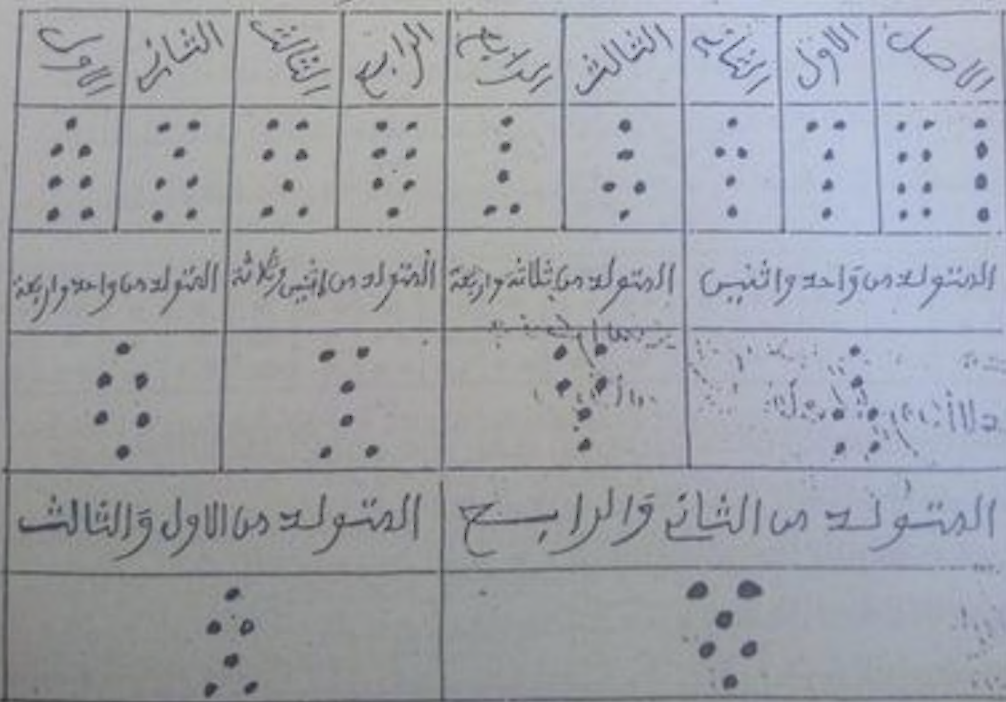 الاصل الاول الثانية الثالث الرابعة الرابع الثالث الثاني الاول
المتولد من واحد واثنين المتولد من ثلاثة واربعة المتولد من اثنين وثلاثة المتولد من واحد واربعة
المتولد من الثاني والرابع المتولد من الاول والثالث